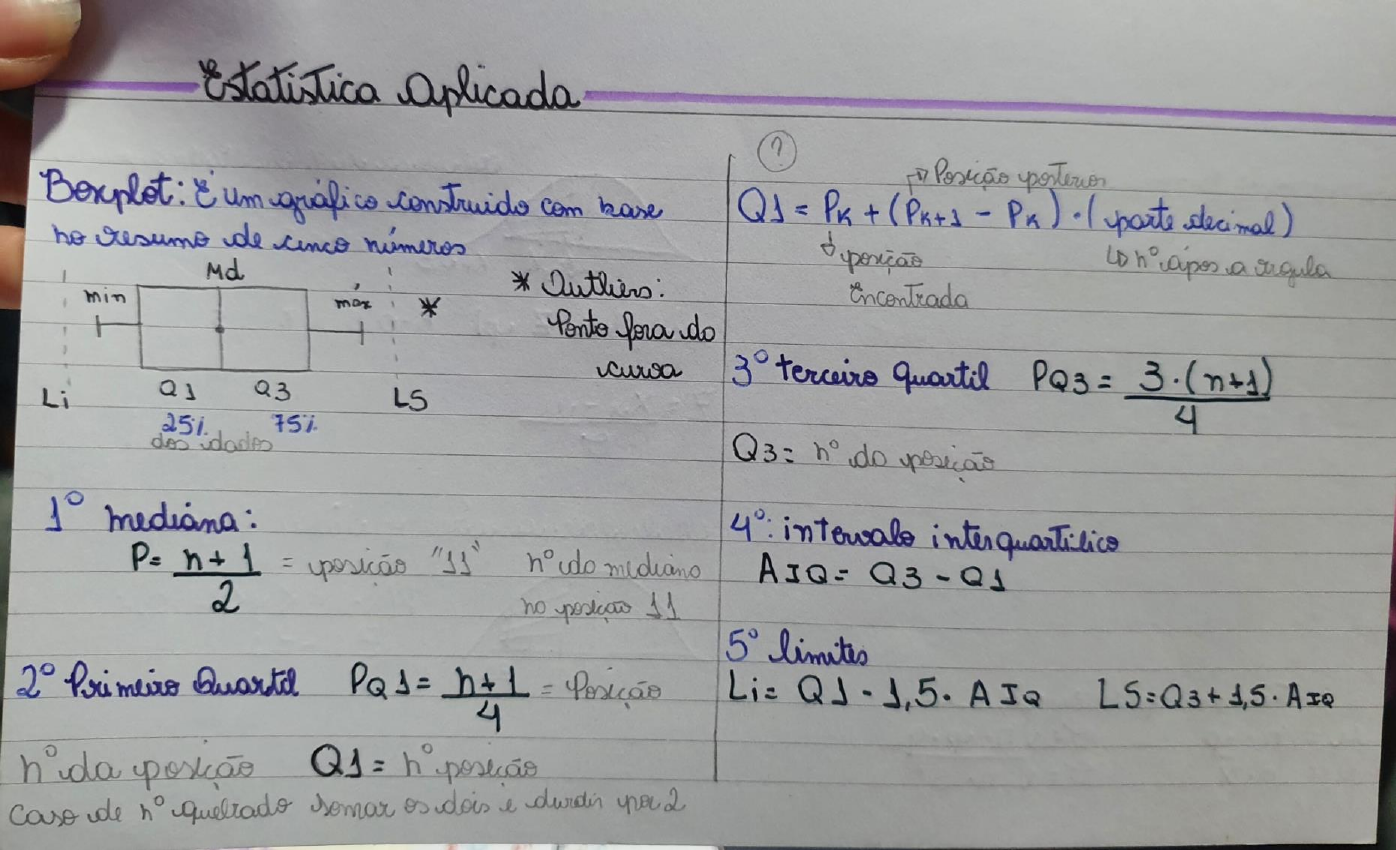 Estatística Aplicada
Boxplot: É um gráfico construido com base
no resumo de cinco números
Md
min
máx
*
Li
Q1
Q3
LS
25%
75%
dos dados
* Outliers:
Ponto fora da
curva
1º mediana:
P= n+1 / 2 = posição "11" nº da mediana
na posição 11
2º Primeiro Quartil PQ1= n+1 / 4 = Posição
nº da posição Q1= nº posição
caso de nº quebrado somar os dois e dividir por 2
?
Posição posterior
Q1= PK + (PK+1 - PK) · (parte decimal)
posição
Encontrada
nº após a virgula
3º terceiro quartil PQ3= 3·(n+1) / 4
Q3= nº da posição
4º: intervalo interquartilico
AIQ= Q3-Q1
5º limites
Li= Q1-1,5· AIQ LS=Q3+1,5· AIQ